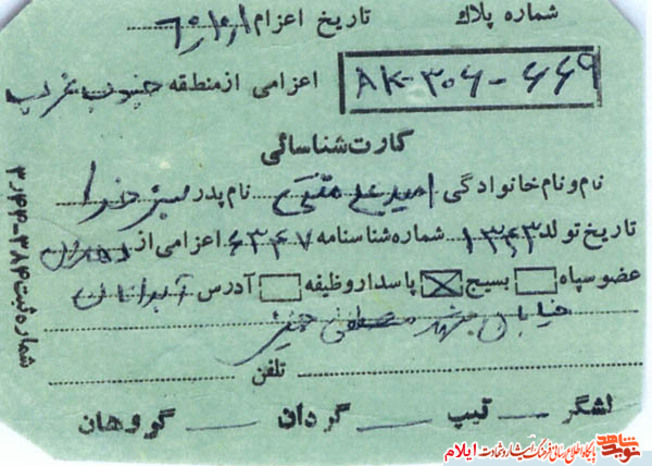 شماره پلاک تاریخ اعزام
AK-304-669 اعزامی از منطقه جنوب غرب
کارت شناسائی
نام و نام خانوادگی امیدعلی نام پدر سبزخدا
تاریخ تولد ۱۳۴۳ شماره شناسنامه ۶۳۴۷ اعزامی از دهلران
عضو سپاه بسیج پاسدار وظیفه آدرس آبدانان
خیابان شهید مصطفی خمینی
تلفن
لشگر تیپ گردان گروهان
شماره ثبت ۳۸۴-۳٫۴۴
نوید شاهد
پایگاه اطلاع رسانی فرهنگ ایثار و شهادت ایلام